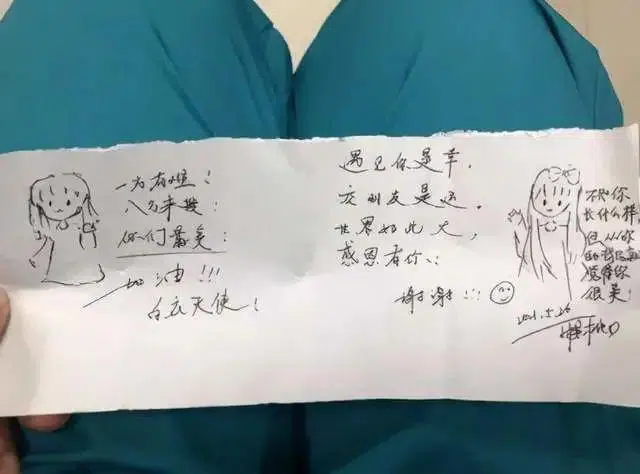 一方有难！
八方来援！
你们最美！
加油!!!
白衣天使！
遇见你是幸，
交朋友是运。
世界如此大，
感恩有你！
谢谢!!!
不知你
长什么样
但从你
觉得你
很美！
2021.5.26